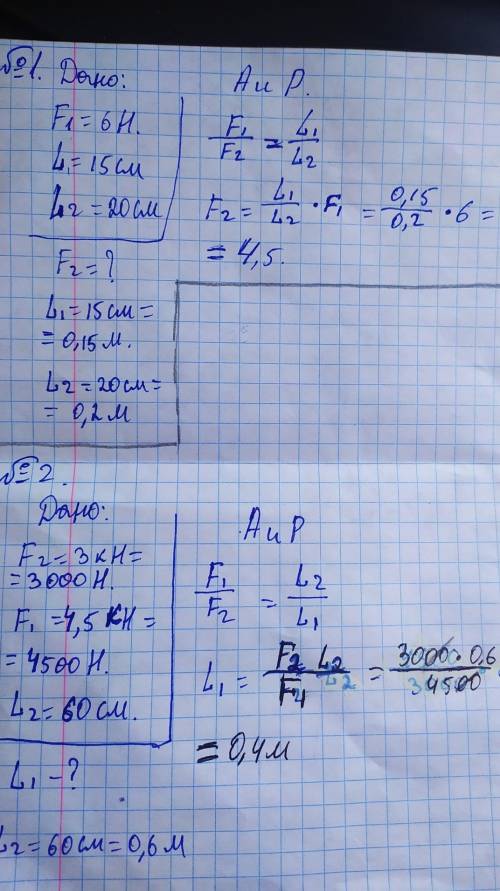 №1. Дано:
F₁ = 6 Н.
L₁ = 15 см
L₂ = 20 см
F₂ = ?
L₁ = 15 см =
= 0,15 м.
L₂ = 20 см =
= 0,2 м
А и Р.
F₁/F₂ = L₁/L₂
F₂ = L₁/L₂ · F₁ = 0,15/0,2 · 6 =
= 4,5.
№2.
Дано:
F₂ = 3 кН =
= 3000 Н.
F₁ = 4,5 кН =
= 4500 Н.
L₂ = 60 см.
L₁ - ?
L₂ = 60 см = 0,6 м
А и Р
F₁/F₂ = L₂/L₁
L₁ = F₂ L₂/F₁ = 3000 · 0,6/4500
= 0,4 м